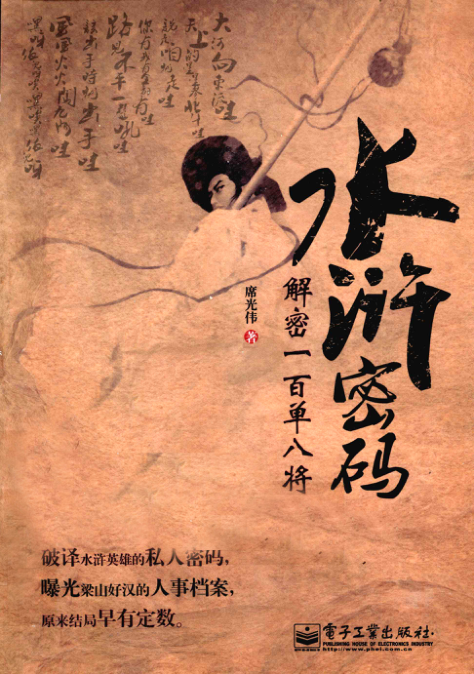 大河向东流哇
天上的星星参北斗哇
说走咱就走哇
你有我有全都有哇
路见不平一声吼哇
该出手时就出手哇
风风火火闯九州哇
水浒密码
解密一百单八将
席光伟 著
破译水浒英雄的私人密码，
曝光梁山好汉的人事档案，
原来结局早有定数。
電子工業出版社·
PUBLISHING HOUSE OF ELECTRONICS INDUSTRY
http://www.phei.com.cn